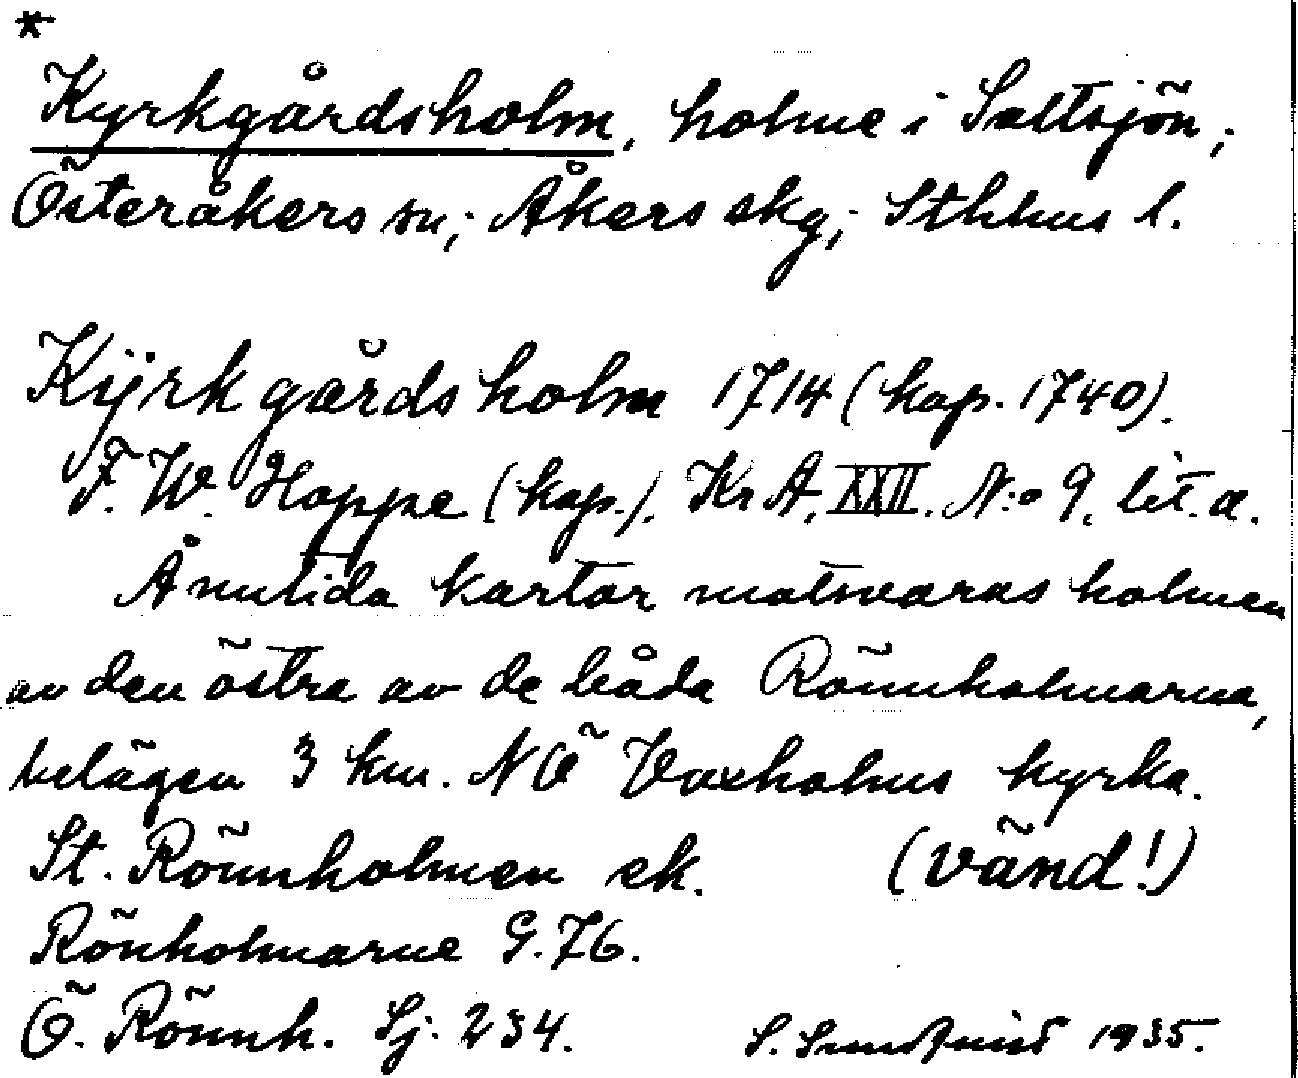 *
Kyrkgårdsholm, holme i Saltsjön;
Österåkers sn; Åkers skg; Sthlms l.
Kÿrkgårdsholm 1714 (kop. 1740).
F. W. Hoppe (kop.). Kr A, XXII. N:o 9, lit. a.
Å nutida kartor motsvaras holmen
av den östra av de båda Rönnholmarna,
belägen 3 km. NÖ Vaxholms kyrka.
St. Rönnholmen ek. (vänd!)
Rönholmarne G. 76.
Ö. Rönnh. Sj. 234. S. Sundquist 1935.